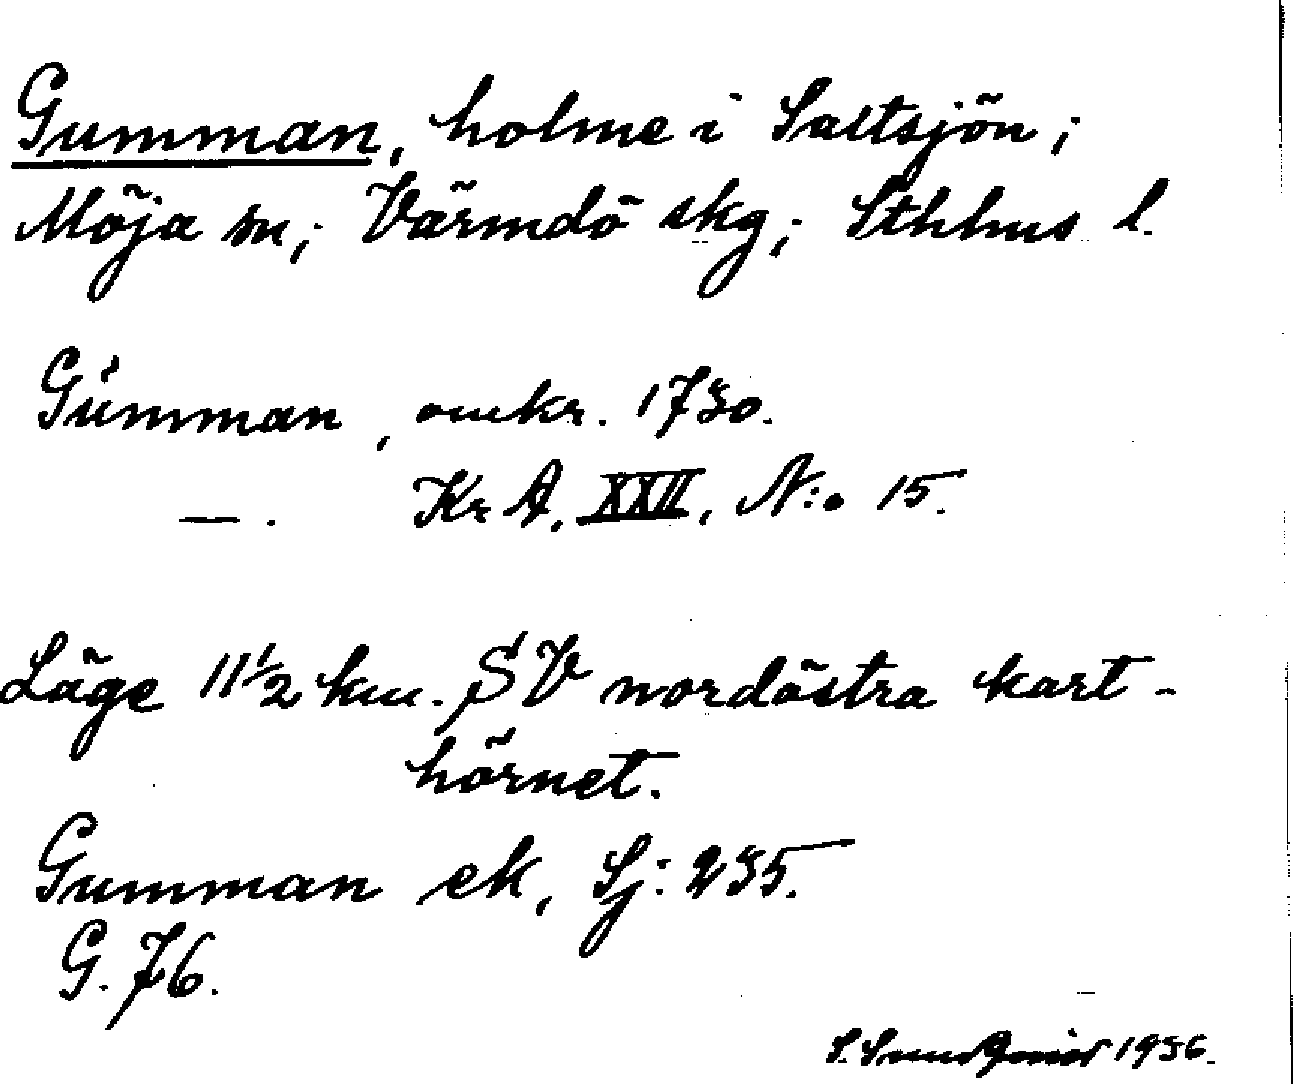 Gumman, holme i Saltsjön;
Möja sn; Värmdö skg; Sthhus l.
Gumman, omkr. 1730.
—. Kr A. XXII, N:o 15.
Läge 11 1/2 km. SV nordöstra kart-
hörnet.
Gumman ek, Sj: 235.
G. 76.
S. 1936.